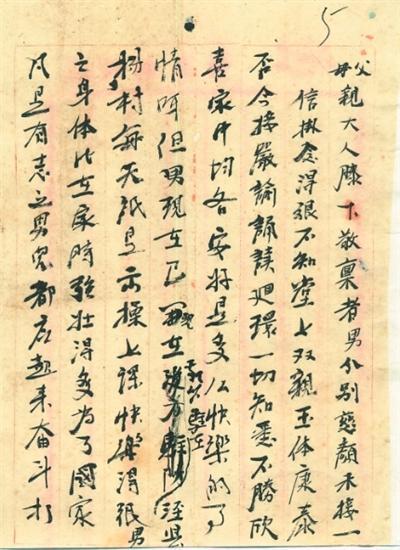 5
父母親大人膝下敬禀者男分别慈顏未接一
信掛念得很不知堂上双親玉体康泰
否今接嚴諭誦讀廻環一切知悉不勝欣
喜家中均各安好是多么快樂的事
情呀但男現在已在後方涇县
楊村每天祇是出操上課快樂得很男
之身体比在家時强壮得多为了國家
凡是有志之男兒都应起来奋斗打